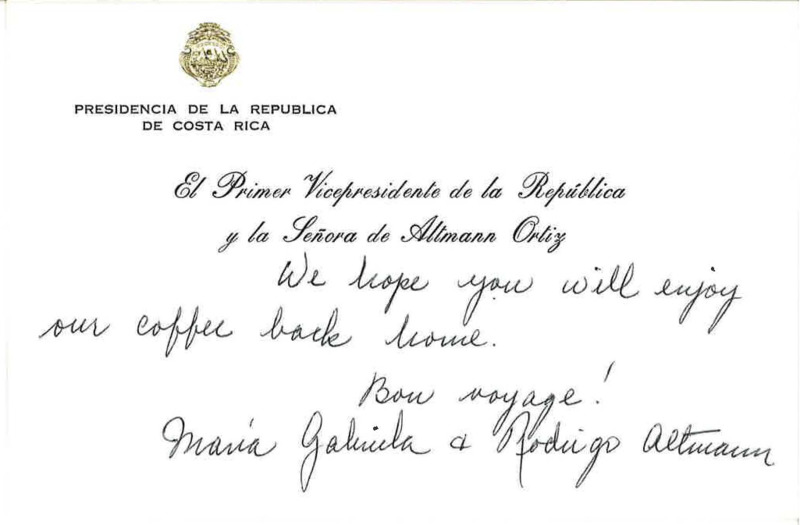 PRESIDENCIA DE LA REPUBLICA
DE COSTA RICA
El Primer Vicepresidente de la República
y la Señora de Altmann Ortiz
We hope you will enjoy
our coffee back home.
Bon voyage!
María Gabriela & Rodrigo Altmann